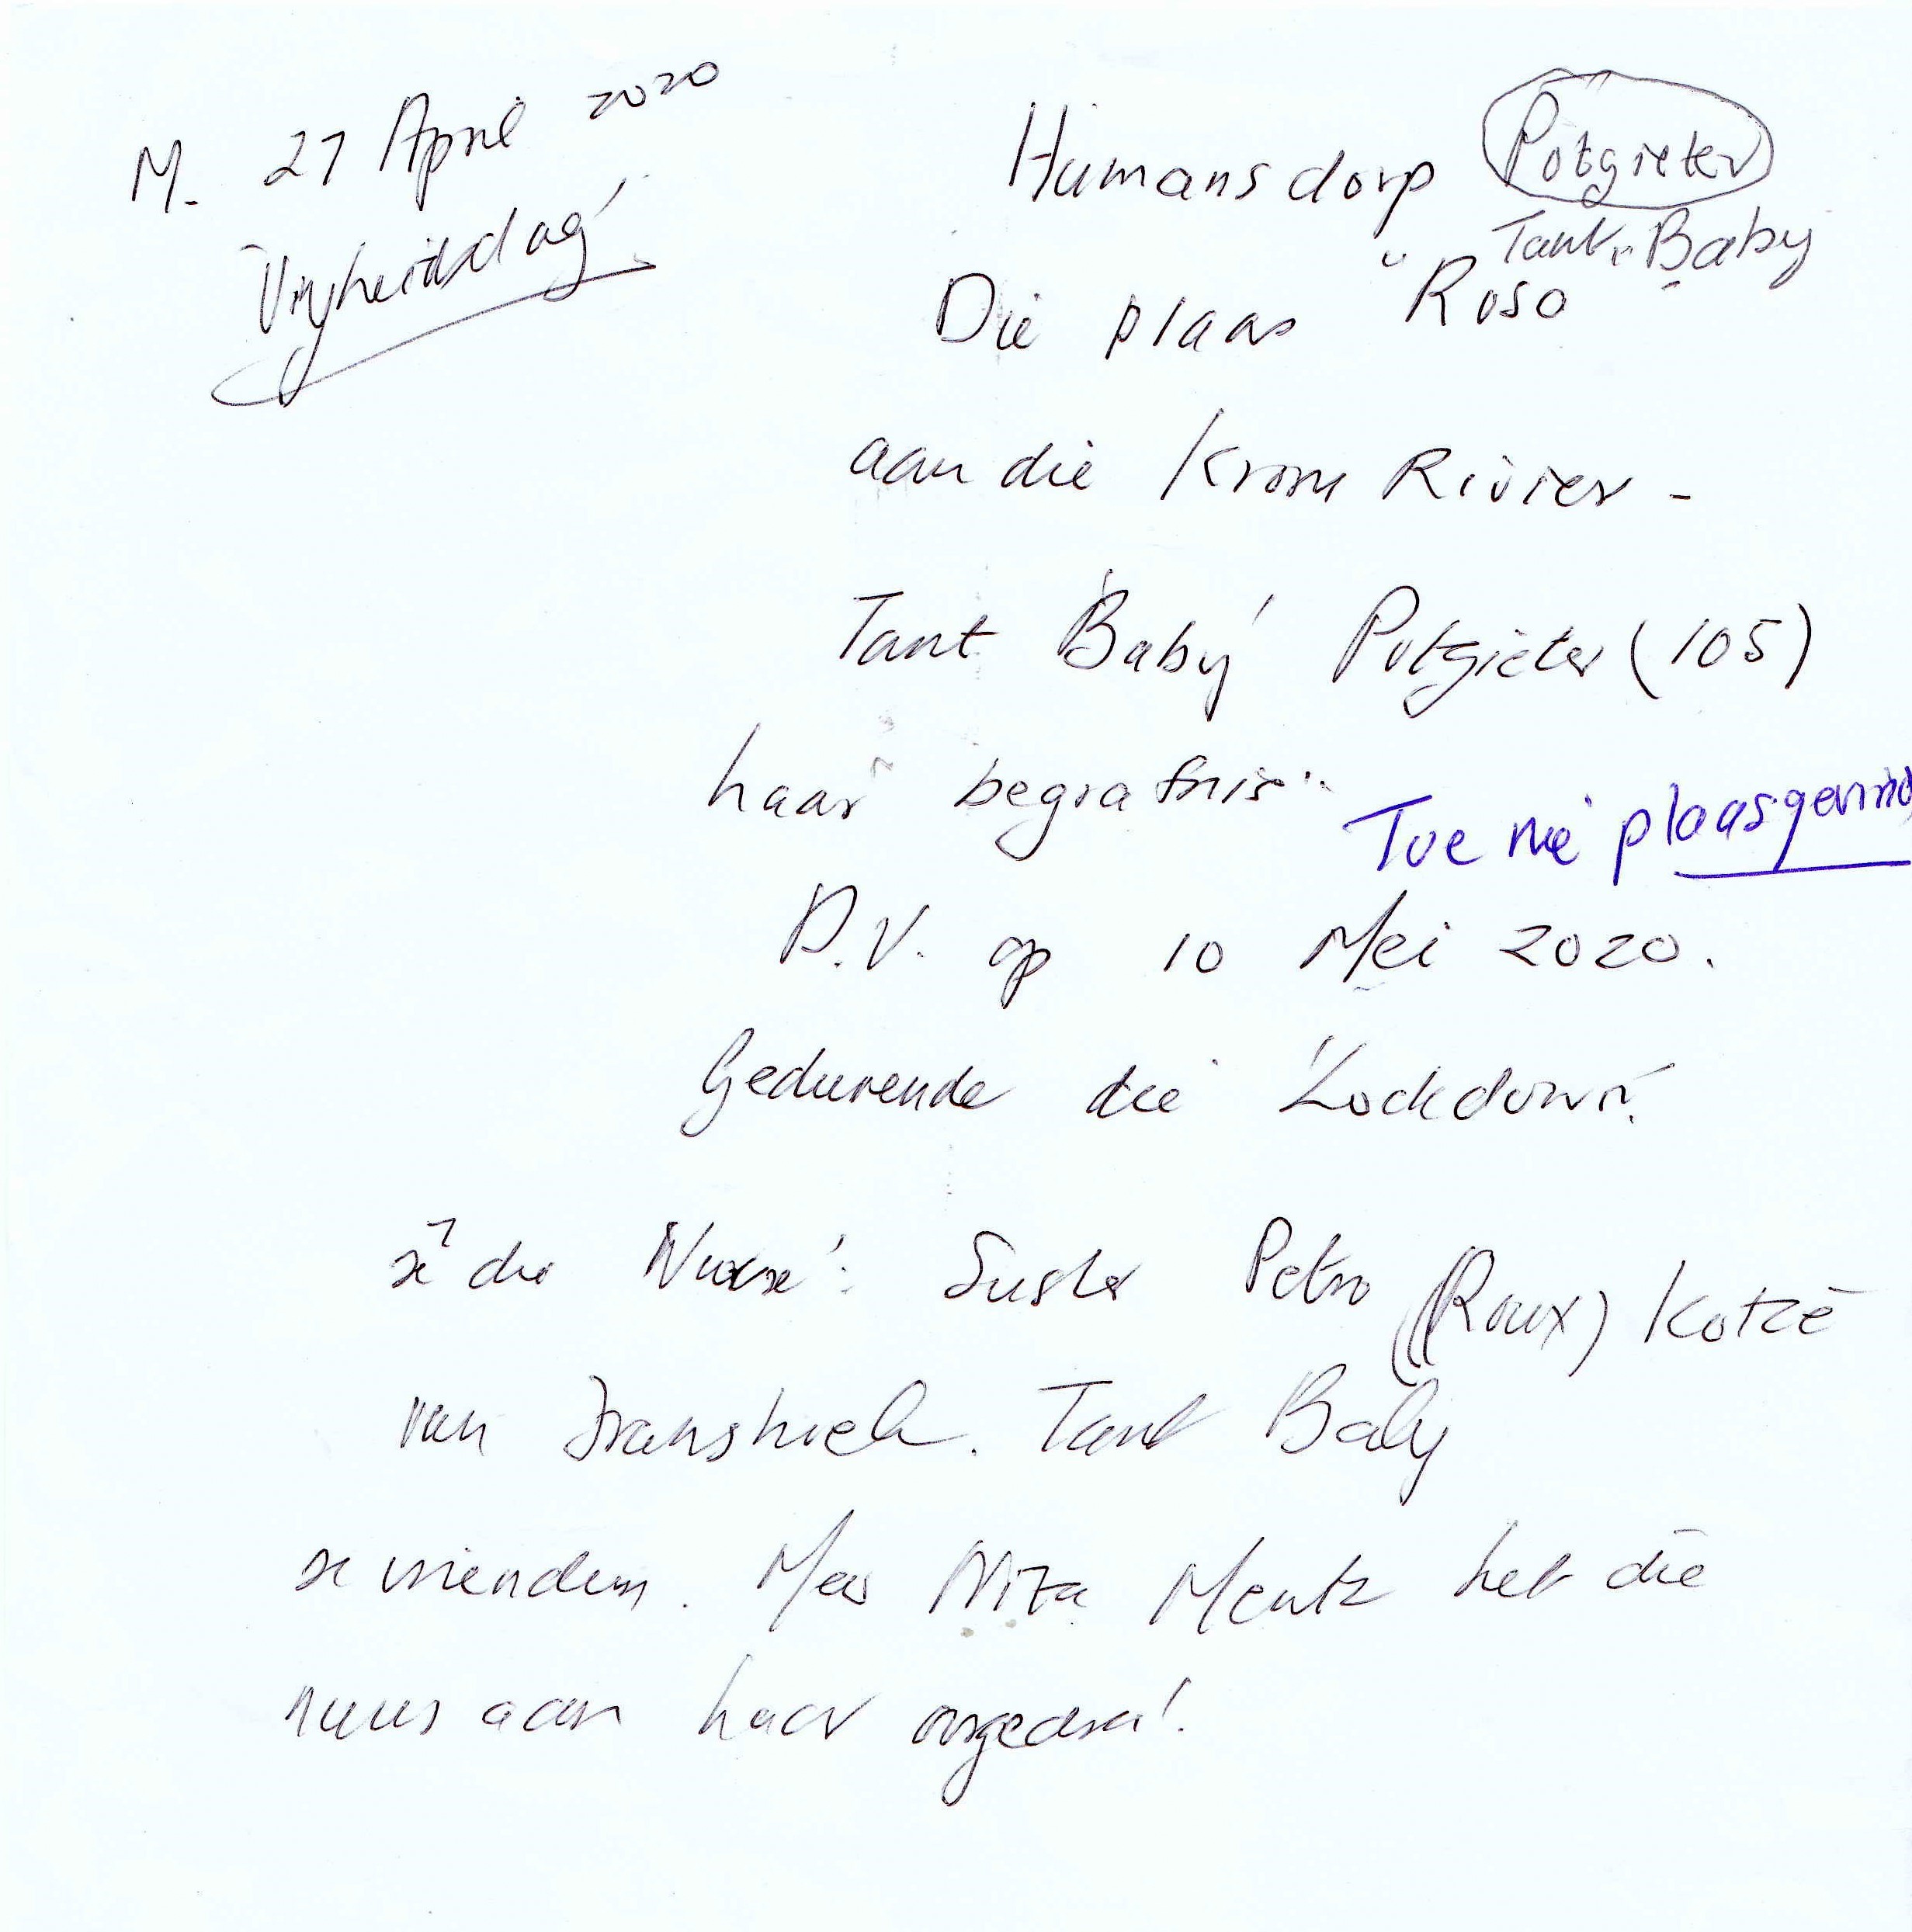 M. 27 April 2020
'Vryheidsdag'
Humansdorp Potgieter
Tant "Baby"
Die plaas "Roso"
aan die Krom Rivier -
Tant 'Baby' Potgieter (105)
haar begrafnis"
Toe nie plaasgevind
D.V. op 10 Mei 2020.
Gedurende die 'Lockdown'.
sê die 'Nurse': Suster Petro (Roux) Kotzé
van Franshoek. Tant Baby
se vriendin. Mev Nita Mentz het die
nuus aan haar oorgedra!